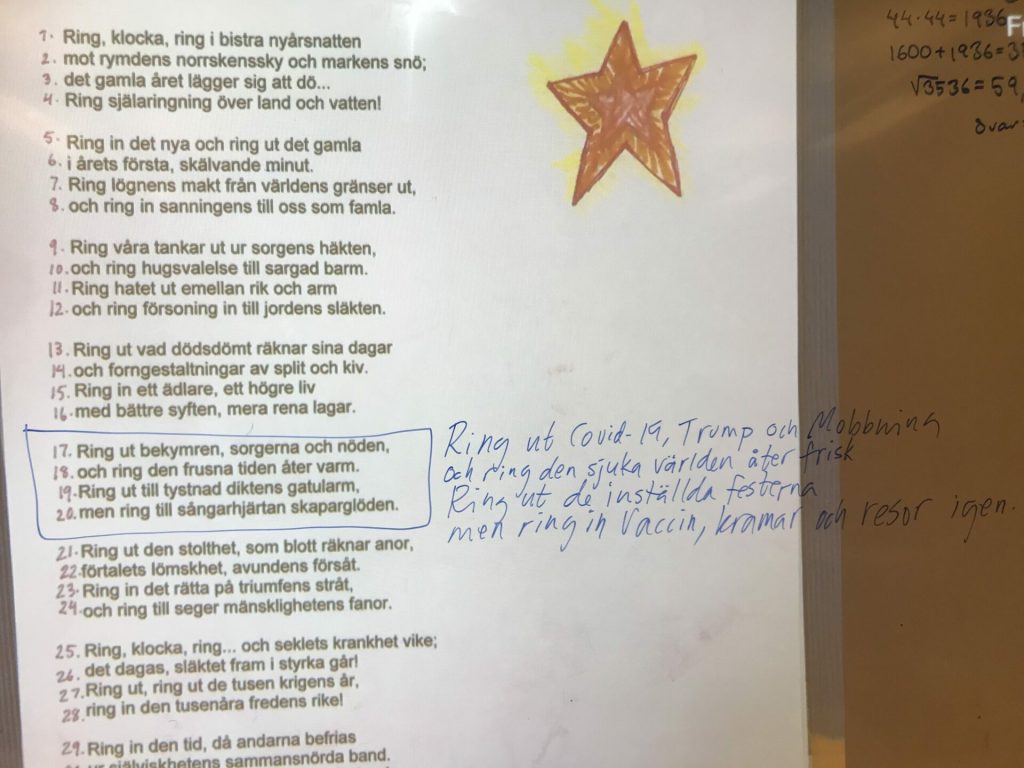 1. Ring, klocka, ring i bistra nyårsnatten
2. mot rymdens norrskenssky och markens snö;
3. det gamla året lägger sig att dö...
4. Ring själaringning över land och vatten!
5. Ring in det nya och ring ut det gamla
6. i årets första, skälvande minut.
7. Ring lögnens makt från världens gränser ut,
8. och ring in sanningens till oss som famla.
9. Ring våra tankar ut ur sorgens häkten,
10. och ring hugsvalelse till sargad barm.
11. Ring hatet ut emellan rik och arm
12. och ring försoning in till jordens släkten.
13. Ring ut vad dödsdömt räknar sina dagar
14. och forngestaltningar av split och kiv.
15. Ring in ett ädlare, ett högre liv
16. med bättre syften, mera rena lagar.
17. Ring ut bekymren, sorgerna och nöden,
18. och ring den frusna tiden åter varm.
19. Ring ut till tystnad diktens gatularm,
20. men ring till sångarhjärtan skaparglöden.
Ring ut Covid-19, Trump och Mobbning
och ring den sjuka världen åter frisk
Ring ut de inställda festerna
men ring in Vaccin, kramar och resor igen.
21. Ring ut den stolthet, som blott räknar anor,
22. förtalets lömskhet, avundens försåt.
23. Ring in det rätta på triumfens stråt,
24. och ring till seger mänsklighetens fanor.
25. Ring, klocka, ring... och seklets krankhet vike;
26. det dagas, släktet fram i styrka går!
27. Ring ut, ring ut de tusen krigens år,
28. ring in den tusenåra fredens rike!
29. Ring in den tid, då andarna befrias
ur själviskhetens sammansnörda band.
44·44=1936
1600+1936=3
√3536=59,
Svar